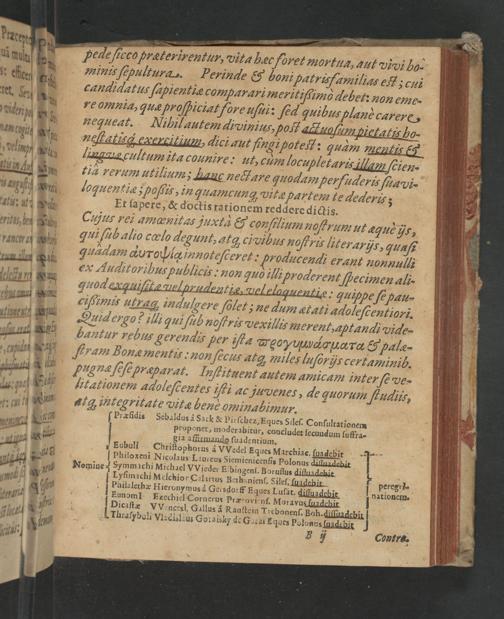 pede sicco præterirentur, vita hæc foret mortua, aut vivi ho-
minis sepultura. Perinde & boni patrisfamilias est; cui
candidatus sapientiæ comparari meritissimò debet: non eme-
re omnia, quæ prospiciat fore usui: sed quibus planè carere
nequeat. Nihil autem divinius, post actuosum pietatis ho-
nestatisq́ exercitium, dici aut fingi potest: quàm mentis &
linguæ cultum ita counire: ut, cum locupletaris illam scien-
tiâ rerum utilium; hanc nectare quodam perfuderis suavi-
loquentiæ; possis, in quamcunq́ vitæ partem te dederis;
Et sapere, & doctis rationem reddere dictis.
Cujus rei amœnitas juxtà & consilium nostrum ut æquè ijs,
qui sub alio cœlo degunt, atq́ civibus nostris literarijs, quasi
quâdam ἀυτοψίᾳ innotesceret: producendi erant nonnulli
ex Auditoribus publicis: non quò illi proderent specimen ali-
quod exquisitæ vel prudentiæ, vel eloquentiæ: quippe se pau-
cissimis utraq́ indulgere solet; ne dum ætati adolescentiori.
Quid ergo? illi qui sub nostris vexillis merent, aptandi vide-
bantur rebus gerendis per ista προγυμνάσματα & palæ-
stram Bonæmentis: non secus atq́ miles lusorijs certaminib.
pugnæ sese præparat. Instituent autem amicam inter se ve-
litationem adolescentes isti ac juvenes, de quorum studiis,
atq́ integritate vitæ benè ominabimur.
Præsidis Sebaldus á Sack & Pirschez, Eques Siles. Consultationem
proponet, moderabitur, concludet secundum suffra-
gia affirmando suadentium.
Eubuli Christophorus á VVedel Eques Marchiac. suadebit
Philoxeni Nicolaus Laureus Siemienicensis Polonus dissuadebit
Nomine Symmachi Michael VVieder Elbingens. Borussus dissuadebit
Lysimachi Melchior Calartus Bethaniens. Siles. suadebit peregri-
Philalethæ Hieronymus á Gersdorff Eques Lusat. dissuadebit nationem.
Eunomi Ezechiel Cornerus Præroviens. Moravus suadebit
Dicastæ VVencesl. Gallus á Raustein Trebonens. Boh. dissuadebit
Thrasybuli Vladislaus Goraisky de Gorai Eques Polonus suadebit
B ij Contra.